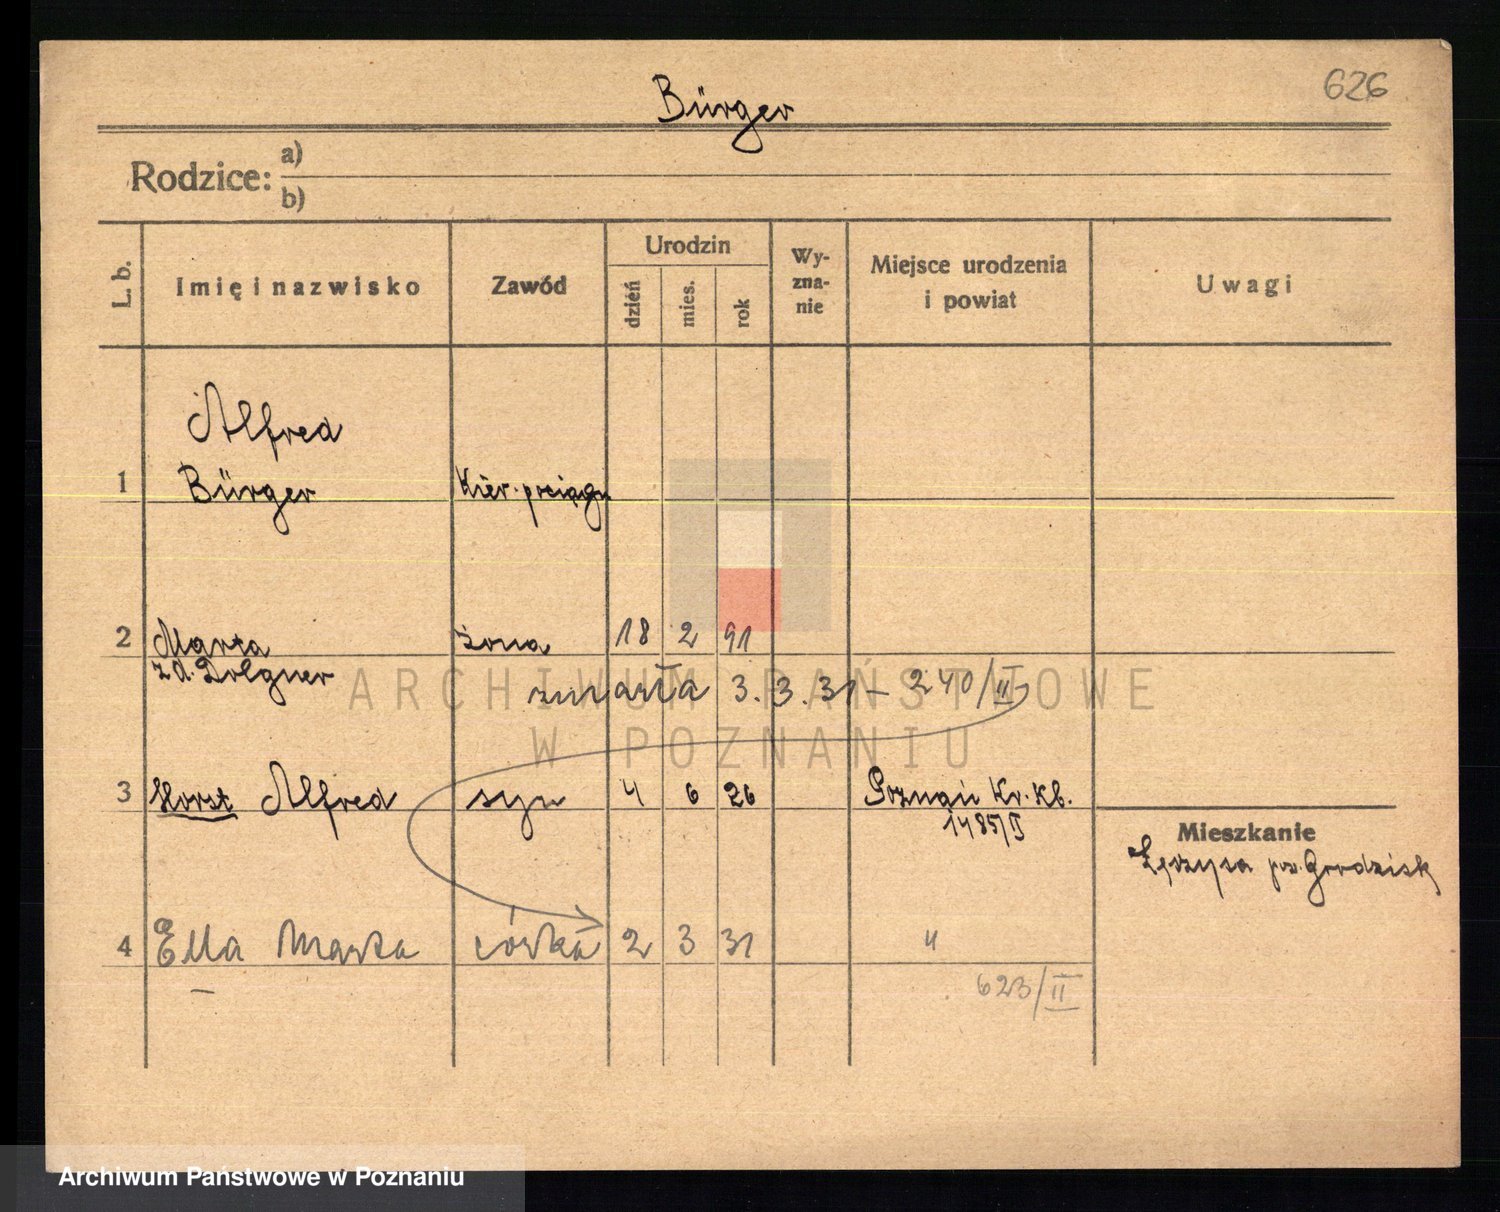 626
Bürger
Rodzice: a)
b)
L. b. Imię i nazwisko Zawód Urodzin dzień mies. rok Wy-zna-nie Miejsce urodzenia i powiat Uwagi
Alfred
1 Bürger Kier. pociągu
2 Marta żona 18 2 91
z d. Dolgner
zmarła 3.3.31 – 240/II
3 Horst Alfred syn 4 6 26 Poznań Kr. Kb.
1485/I
Mieszkanie
pow. Grodzisk
4 Ella Marta córka 2 3 31 "
623/II
ARCHIWUM PAŃSTWOWE
W POZNANIU
Archiwum Państwowe w Poznaniu